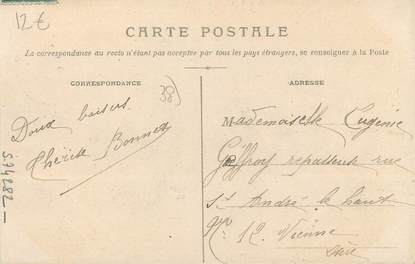 12€
CARTE POSTALE
La correspondance au recto n'étant pas acceptée par tous les pays étrangers, se renseigner à la Poste
CORRESPONDANCE
38)
Doux baisers
Thérèse Bonnet
574282
ADRESSE
Mademoiselle Eugénie
Geffroy repasseuse rue
St André le haut
12. Vienne
Isère